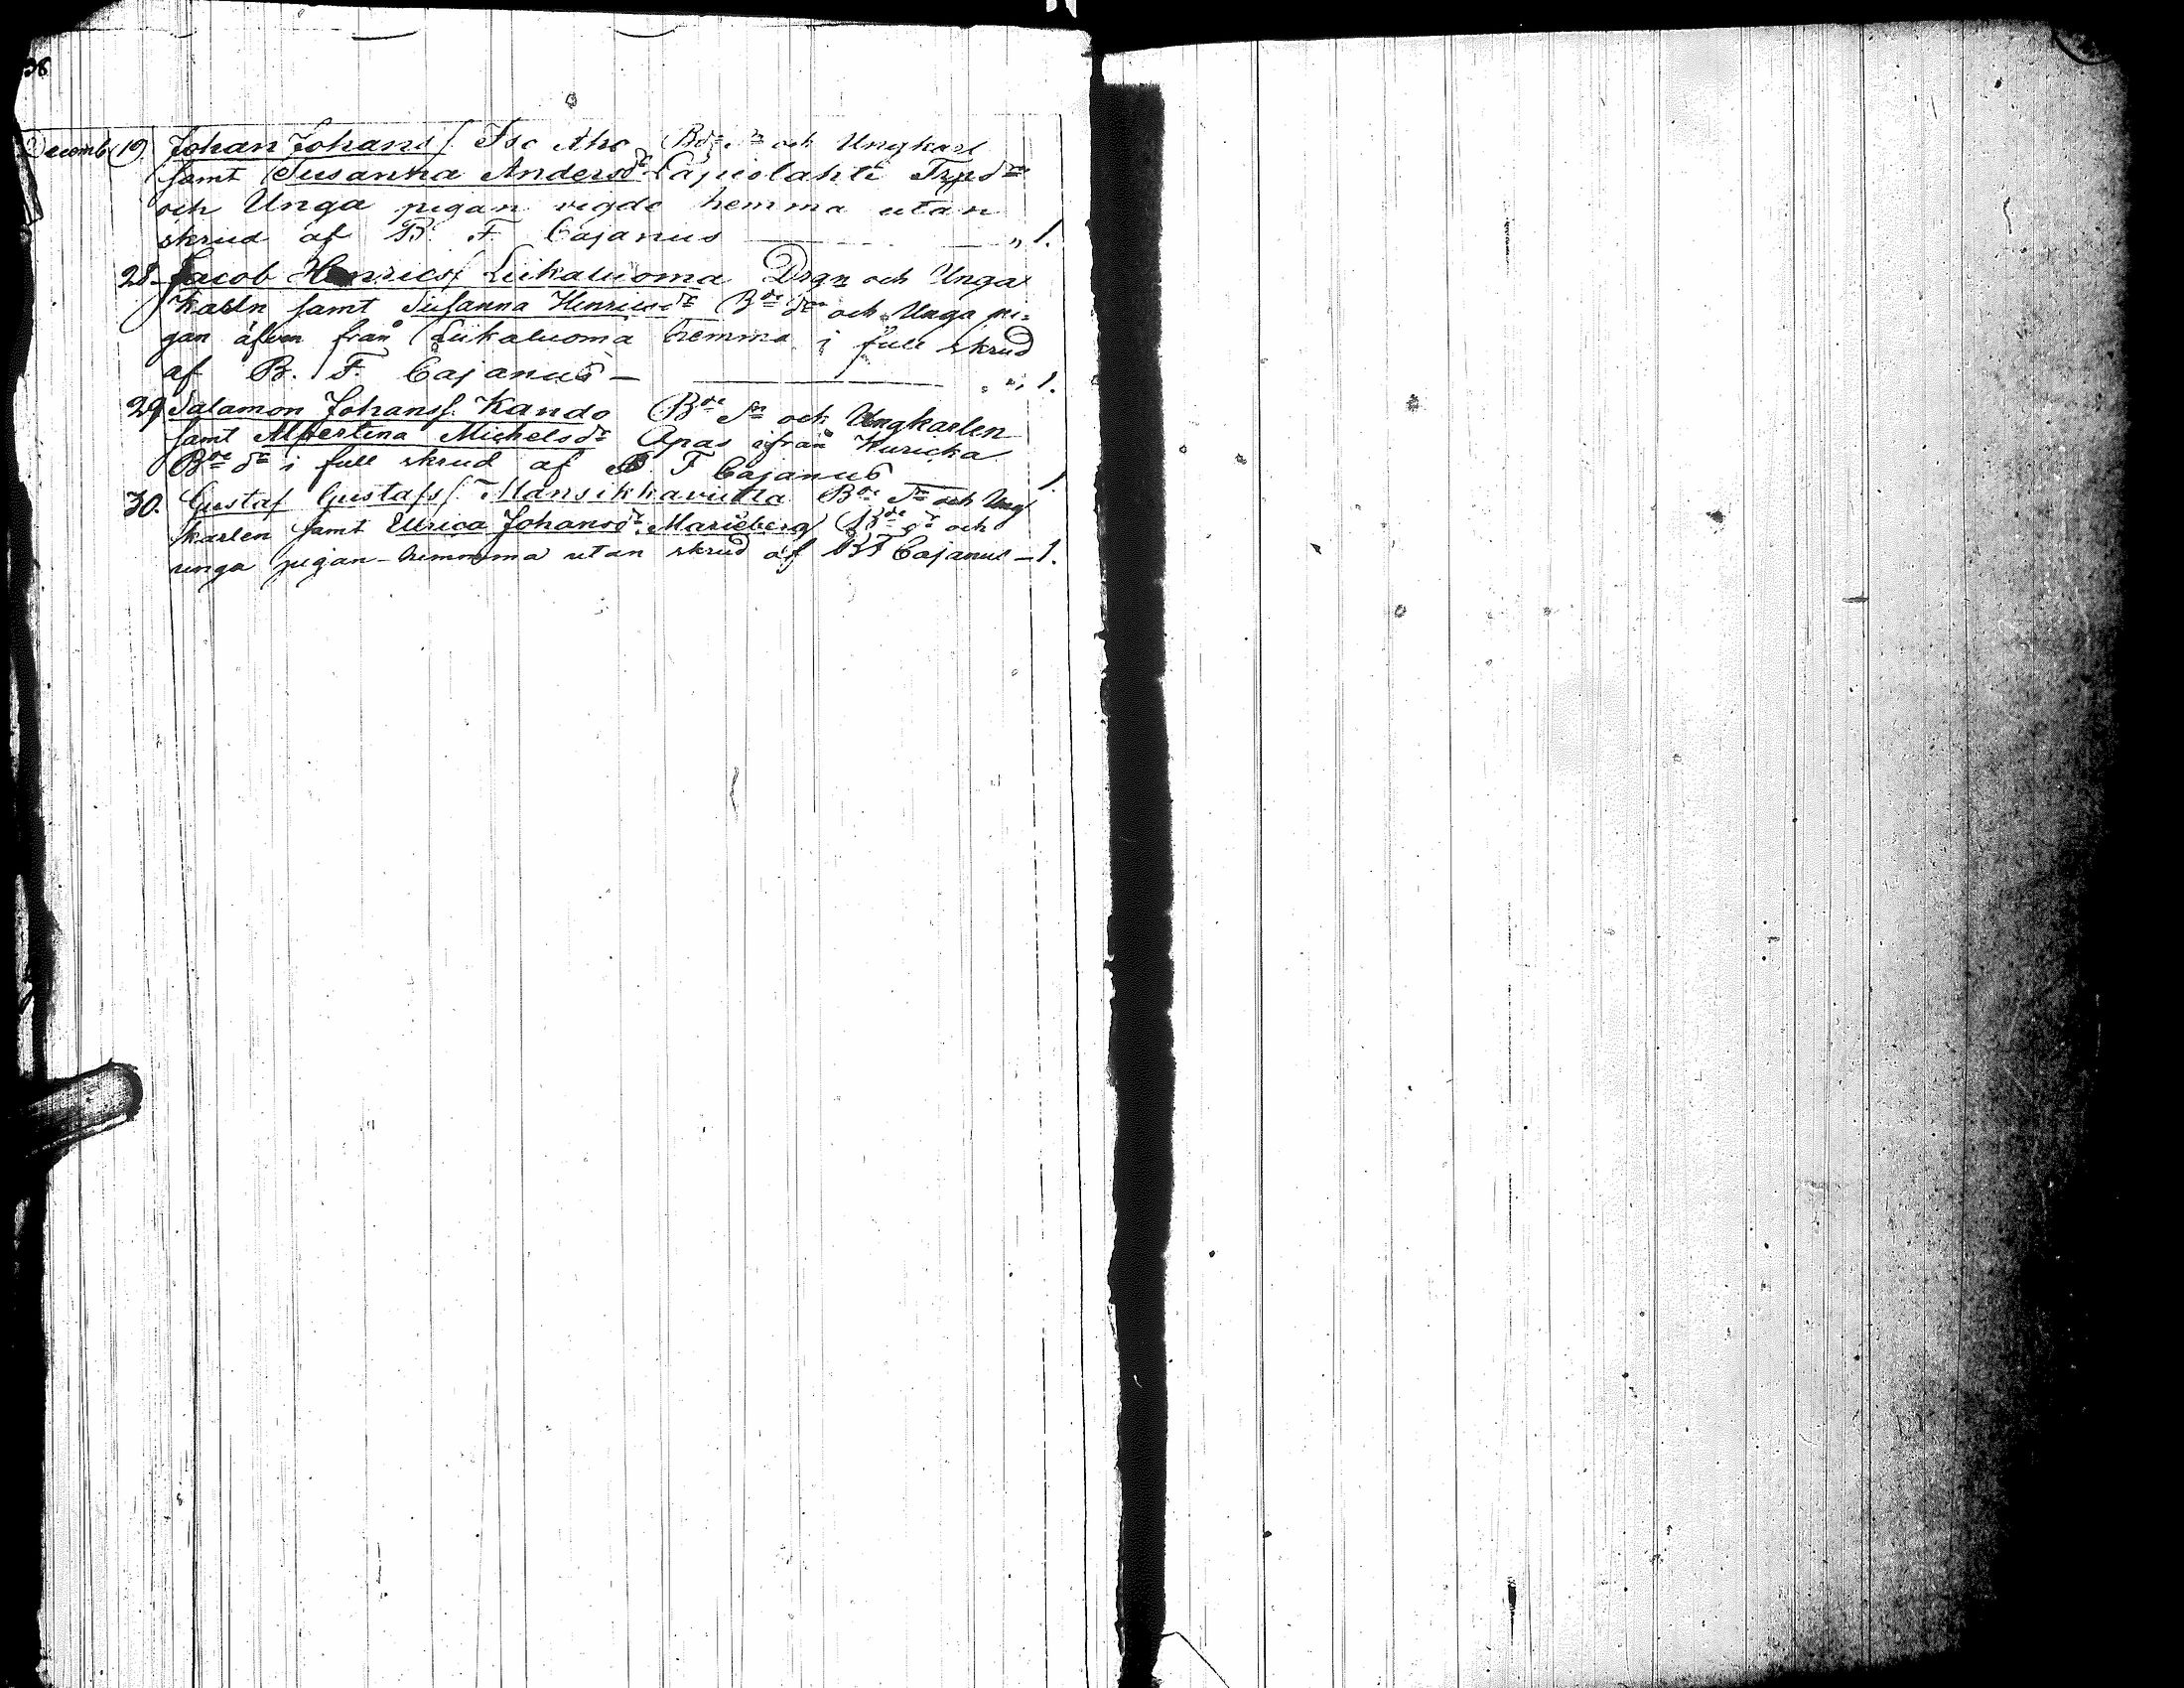 Decemb 19. Johan Johans/ Iso Aho Bdes sn och Ungkarl
samt Susanna Andersdr Lapiolahti Trpdr
och Unga pigan vigde hemma utan
skrud af B. F. Cajanus — „ 1.
28. Jacob Henrics/ Liikaluoma Drgn och Unga
Karln samt Susanna Henricsdr Bde dr och Unga pi-
gan äfven från Liikaluoma hemma i full skrud
af B. F. Cajanus — „ 1.
29 Salamon Johans/. Kando Bde sn och Ungkarlen
samt Albertina Michelsdr Apas ifrån Kuricka
Bde dr i full skrud af B. F Cajanus 1.
30. Gustaf Gustafs/. Mansikkaviita Bde sn och Ung
karlen samt Ullrica Johansdr Marieberg Bde dr och
unga pigan - hemmma utan skrud af BF Cajanus — 1.